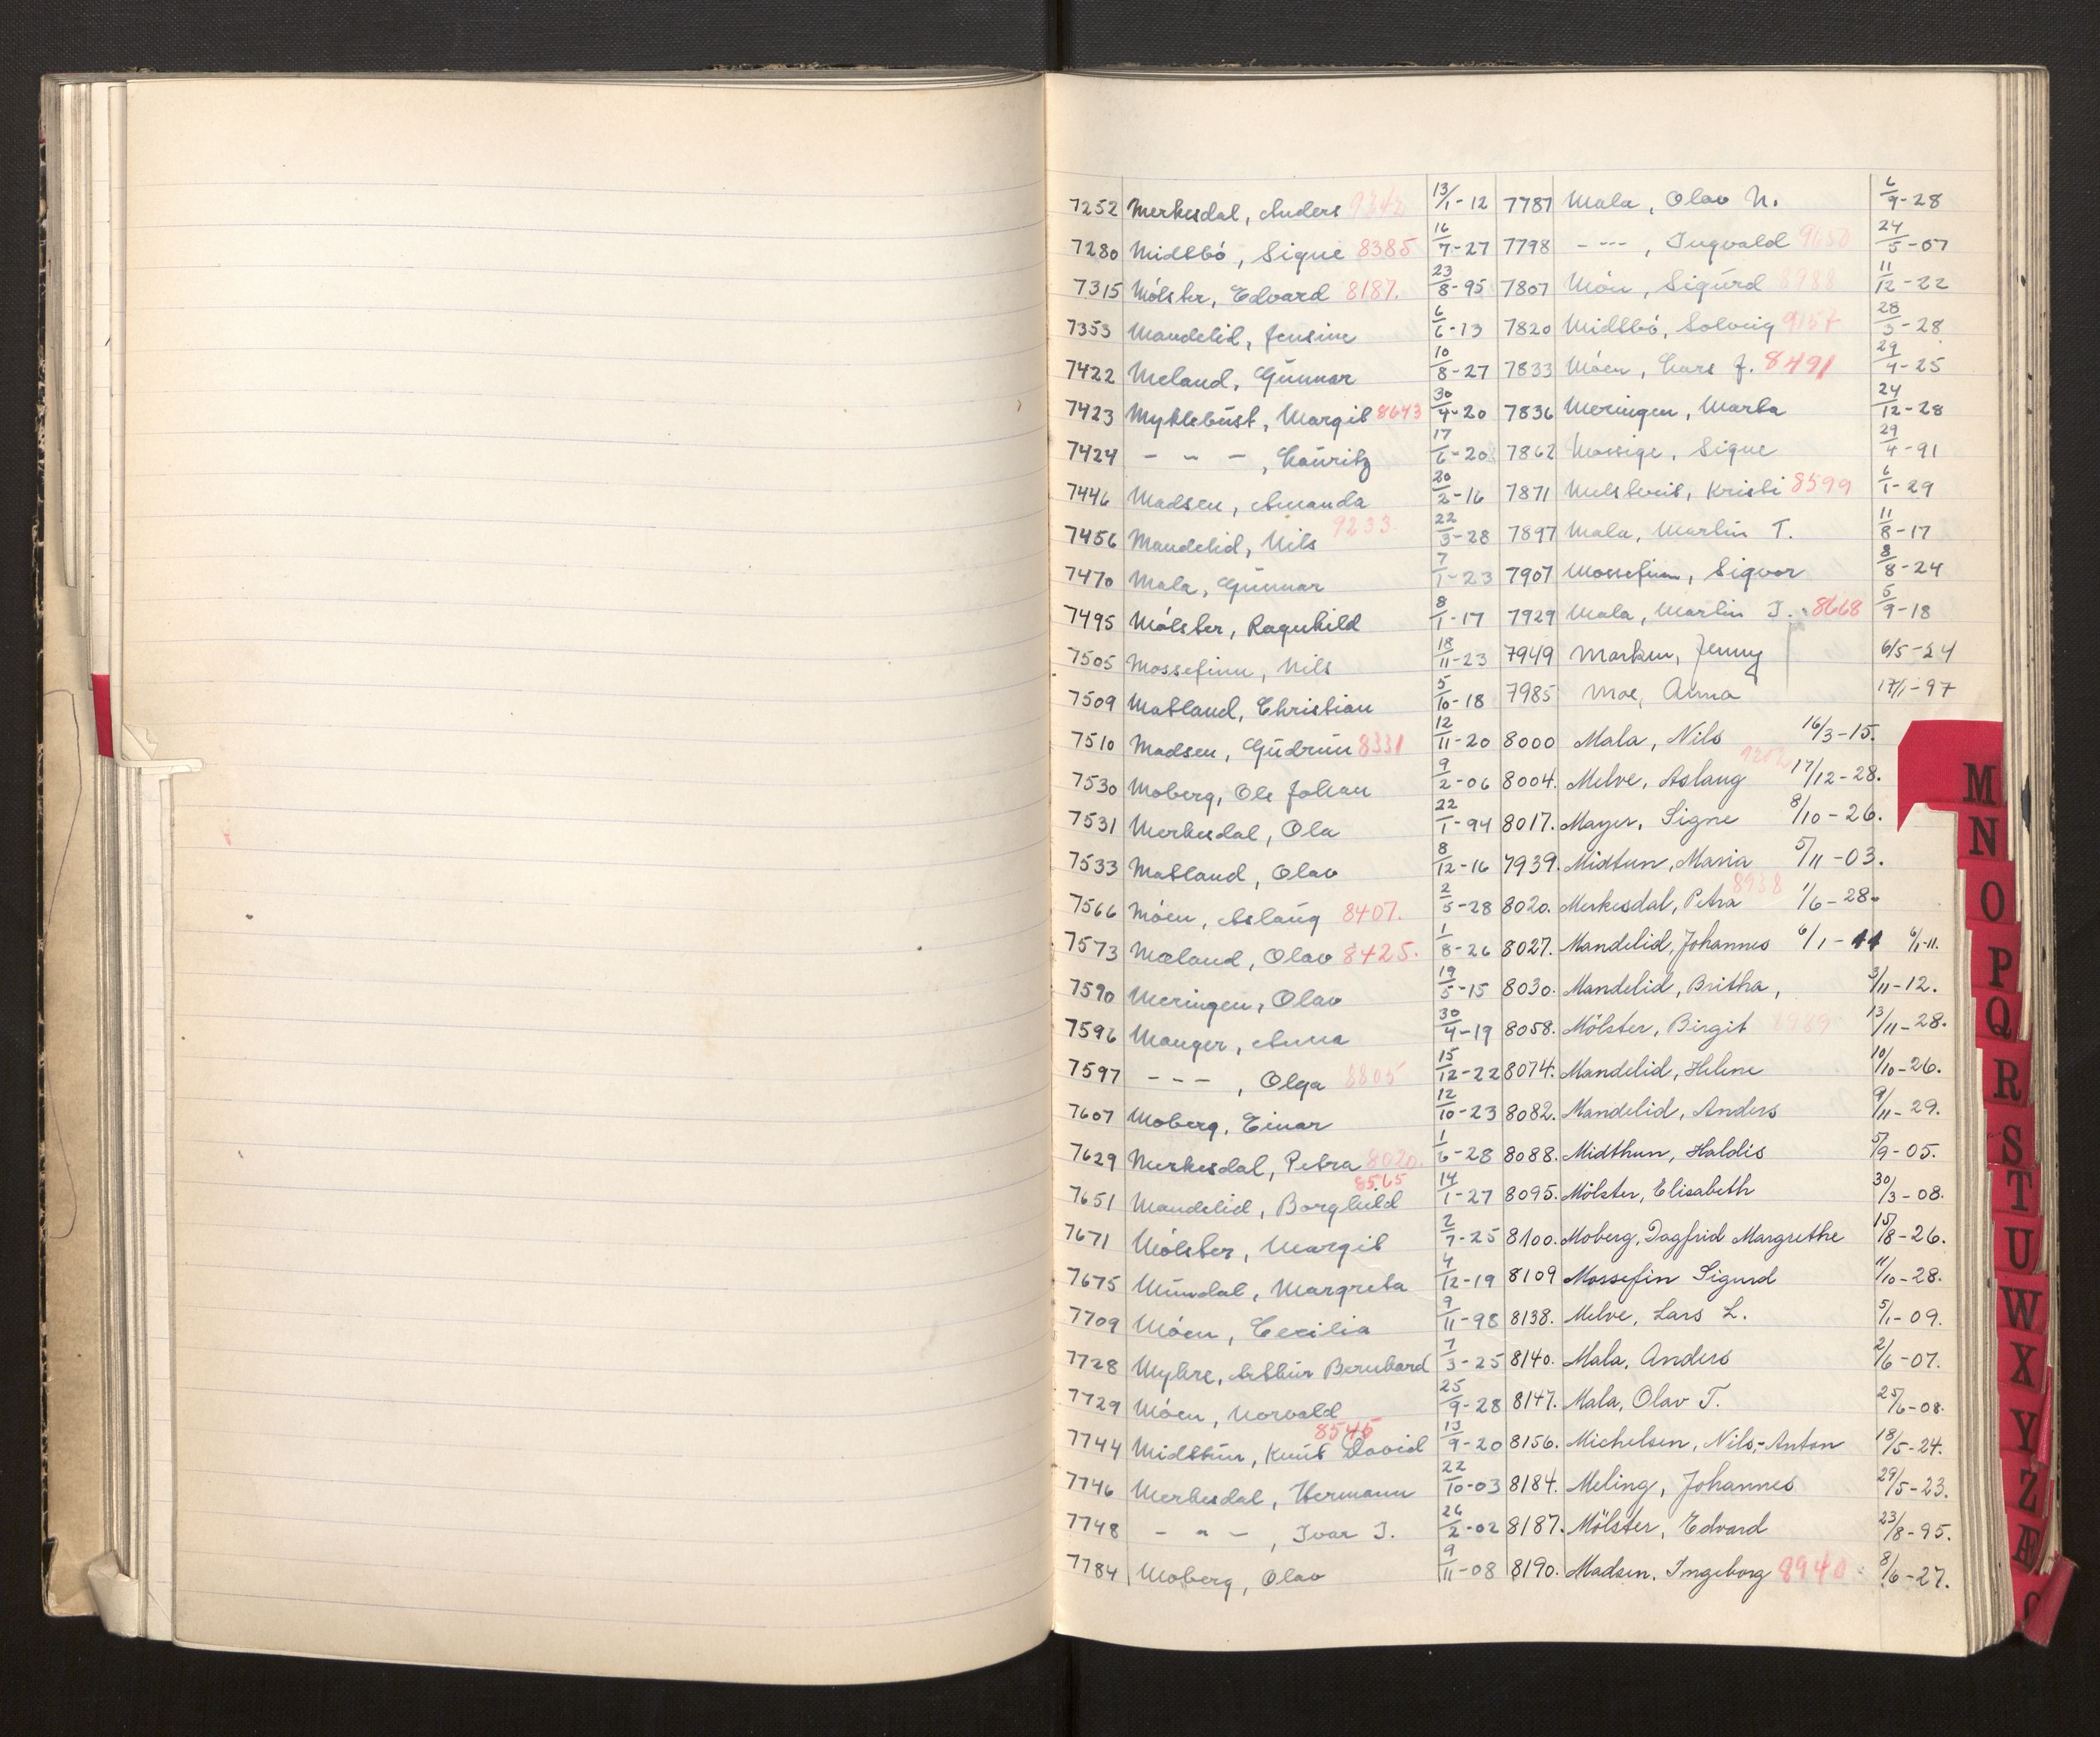 7252 Merkesdal, Anders 13/1-12
7280 Midtbö, Signe 8385 16/7-27
7315 Mölster, Edvard 8187. 23/8-95
7353 Mandelid, Jensine 6/6-13
7422 Meland, Gunnar 10/8-27
7423 Myklebust, Margit 8643 30/4-20
7424 - - -, Lauritz 17/6-20
7446 Madsen, Amanda 20/2-16
7456 Mandelid, Nils 9233 22/3-28
7470 Mala, Gunnar 7/1-23
7495 Mölster, Ragnhild 8/1-17
7505 Mossefinn, Nils 18/11-23
7509 Matland, Christian 5/10-18
7510 Madsen, Gudrun 8331 12/11-20
7530 Moberg, Ole Johan 9/2-06
7531 Merkesdal, Ola 22/1-94
7533 Matland, Olav 8/12-16
7566 Möen, Aslaug 8407. 2/5-28
7573 Mæland, Olav 8425. 1/8-26
7590 Meringen, Olav 19/5-15
7596 Manger, Anna 30/4-19
7597 - - -, Olga 8805 15/12-22
7607 Moberg, Einar 12/10-23
7629 Merkesdal, Petra 8020. 1/6-28
7651 Mandelid, Borghild 8565 14/1-27
7671 Mölster, Margit 2/7-25
7675 Mundal, Margreta 4/12-19
7709 Möen, Cecilia 9/11-98
7728 Myhre, Arthur Bernhard 7/3-25
7729 Möen, Norvald 25/9-28
7744 Midttun, Knut David 8545 13/9-20
7746 Merkesdal, Hermann 22/10-03
7748 - " -, Ivar I. 26/2-02
7784 Moberg, Olav 9/11-08
7787 Mala, Olav N. 6/9-28
7798 - - - -, Ingvald 9650 24/5-07
7807 Möen, Sigurd 8988 11/12-22
7820 Midtbö, Solveig 9157 28/3-28
7833 Möen, Lars J. 8491 29/4-25
7836 Meringen, Marta 24/12-28
7862 Mossige, Signe 29/4-91
7871 Melstveit, Kristi 8599 6/1-29
7897 Mala, Martin T. 11/8-17
7907 Mossefinn, Sigvor 8/8-24
7929 Mala, Martin I. 8668 5/9-18
7949 Marken, Jenny 6/5-24
7985 Moe, Anna 17/1-97
8000 Mala, Nils 16/3-15.
8004. Melve, Aslaug 9202 17/12-28.
8017. Mayer, Signe 8/10-26.
7939. Midtun, Maria 5/11-03.
8020. Merkesdal, Petra 8938 1/6-28.
8027. Mandelid, Johannes 6/1-11 6/1-11.
8030. Mandelid, Britha, 3/11-12.
8058. Mölster, Birgit 13/11-28.
8074. Mandelid, Helene 10/10-26.
8082. Mandelid, Anders 9/11-29.
8088. Midthun, Haldis 5/9-05.
8095. Mölster, Elisabeth 30/3-08.
8100. Moberg, Dagfrid Margrethe 15/8-26.
8109 Mossefin Sigurd 11/10-28.
8138. Melve, Lars L. 5/1-09.
8140. Mala, Anders 2/6-07.
8147. Mala, Olav T. 25/6-08.
8156. Michelsen, Nils-Anton 18/5-24.
8184. Meling, Johannes 29/5-23.
8187. Mölster, Edvard 23/8-95.
8190. Madsen, Ingeborg 8940 8/6-27.
M
N
O
P
Q
R
S
T
U
W
X
Y
Z
Æ